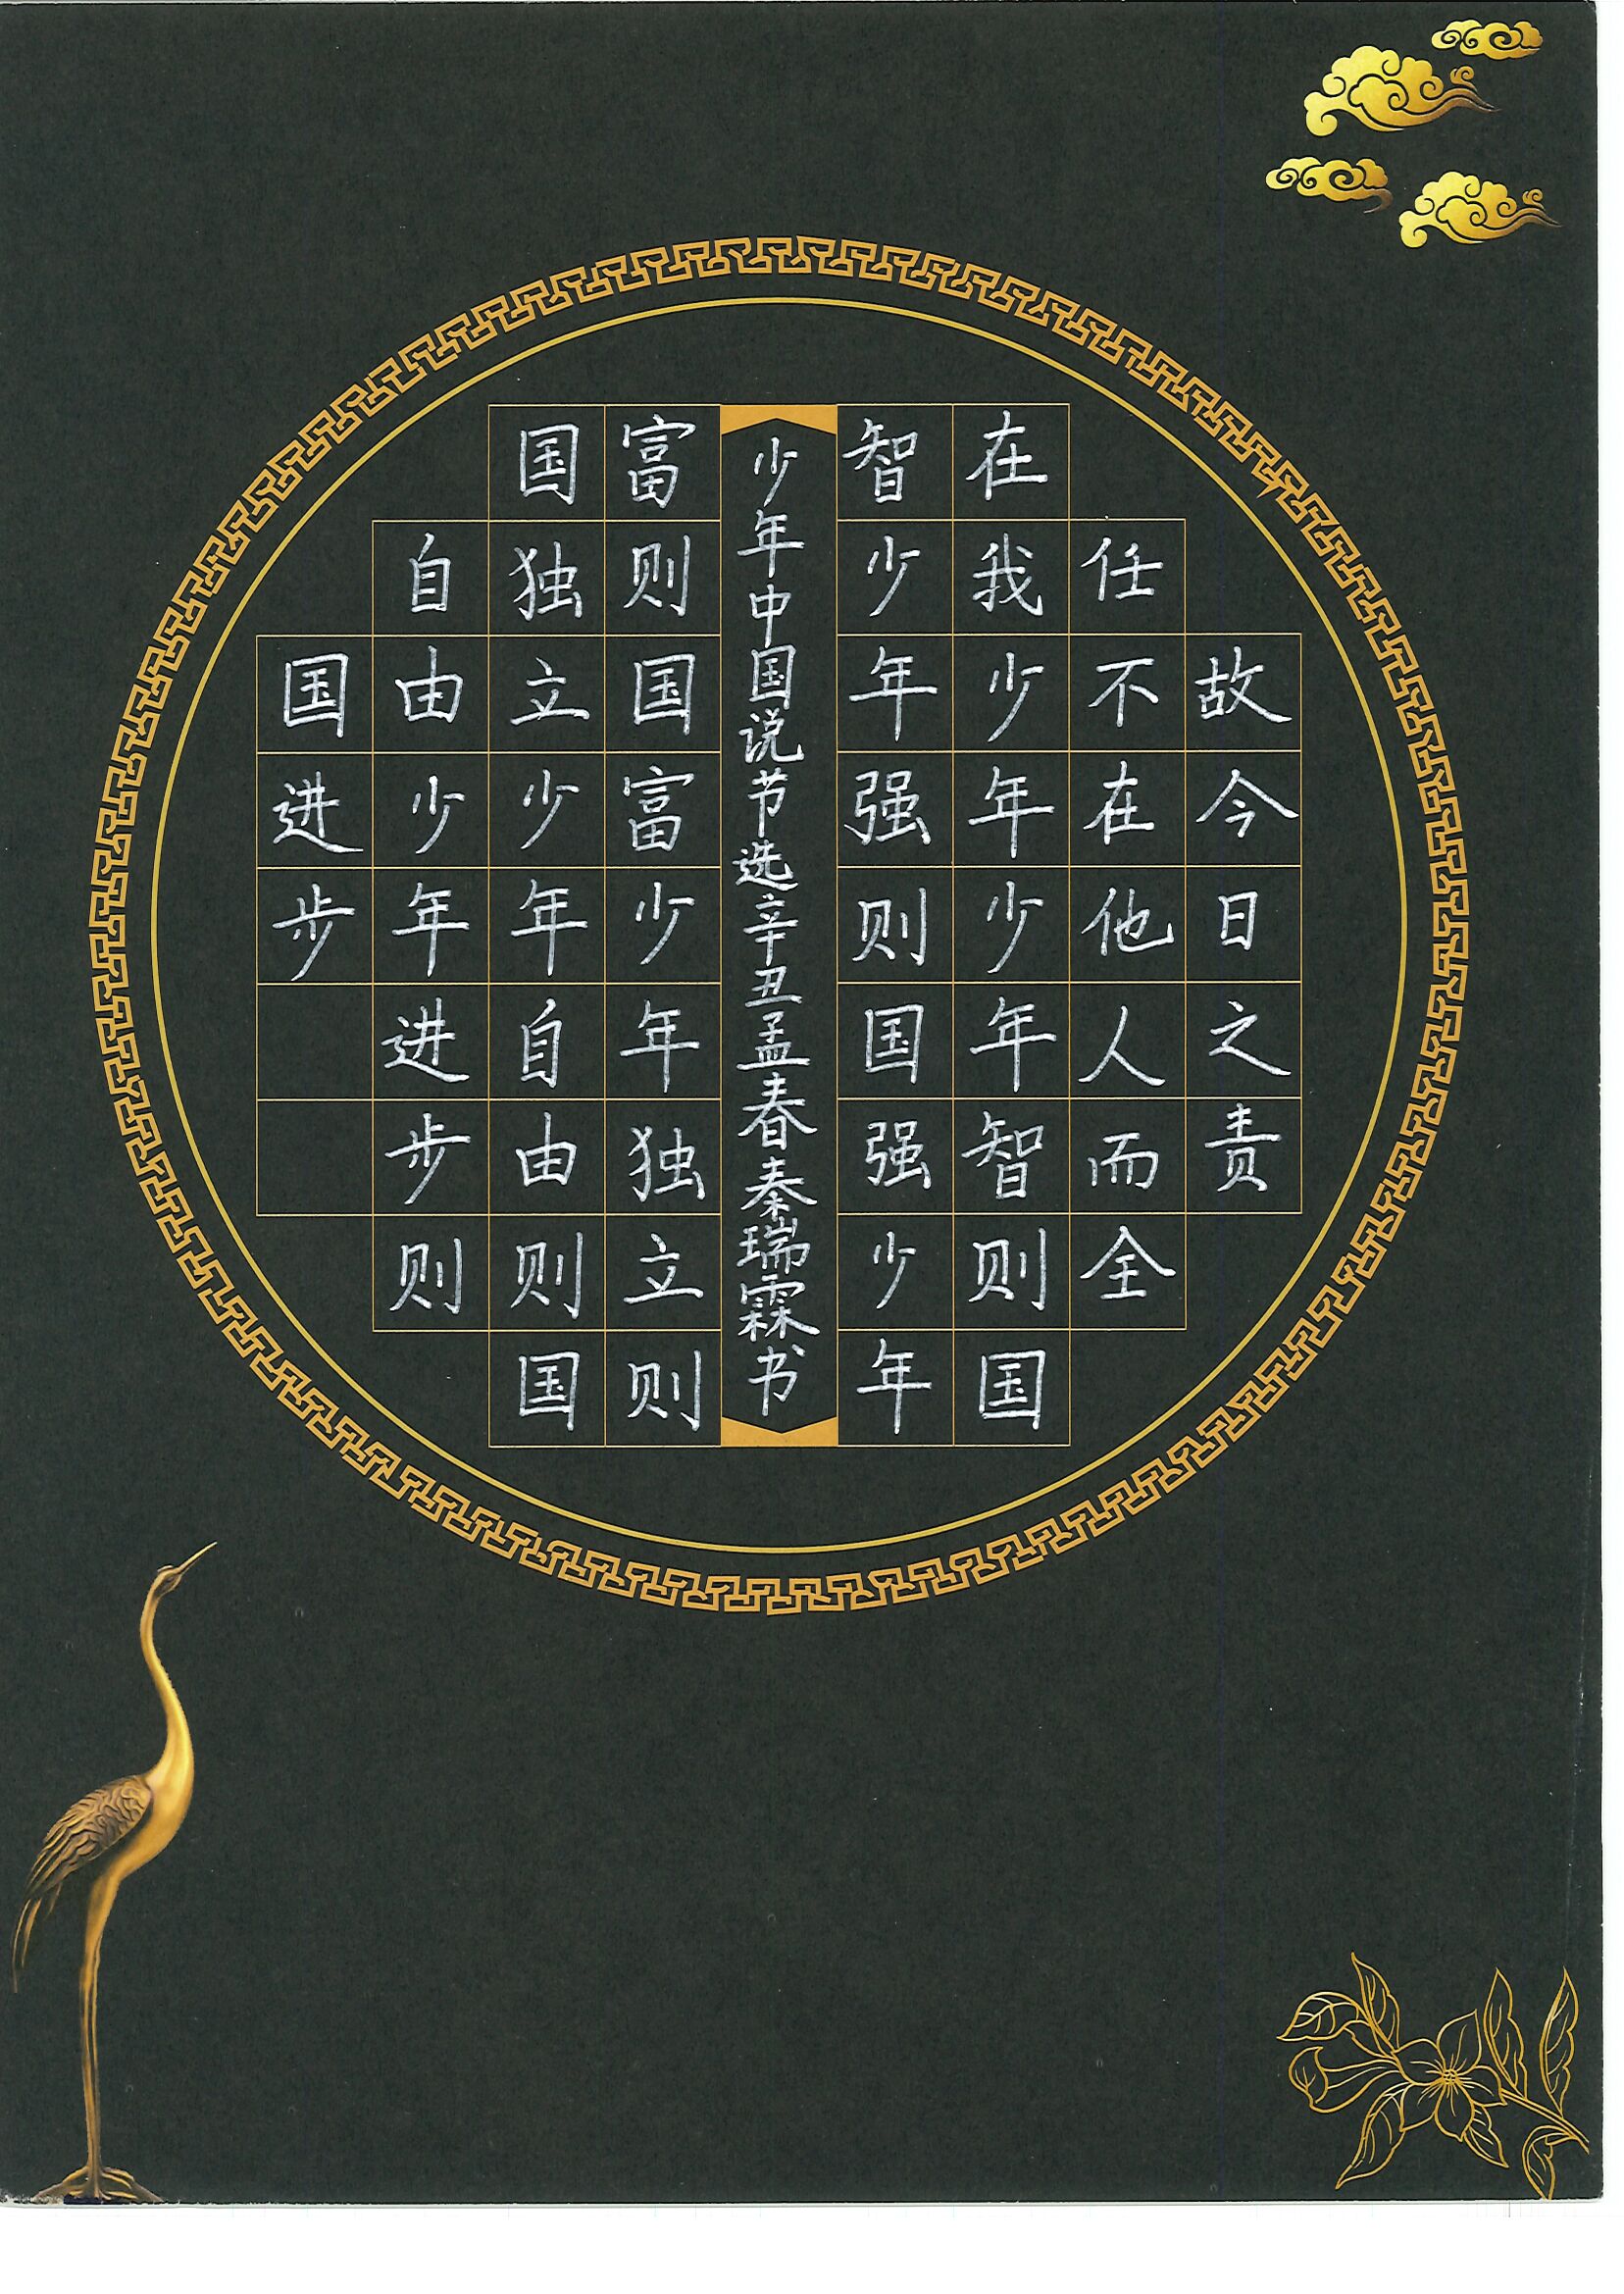 故今日之责
任不在他人而全
在我少年少年智则国
智少年强则国强少年
少年中国说节选辛丑孟春秦瑞霖书
富则国富少年独立则
国独立少年自由则国
自由少年进步则
国进步